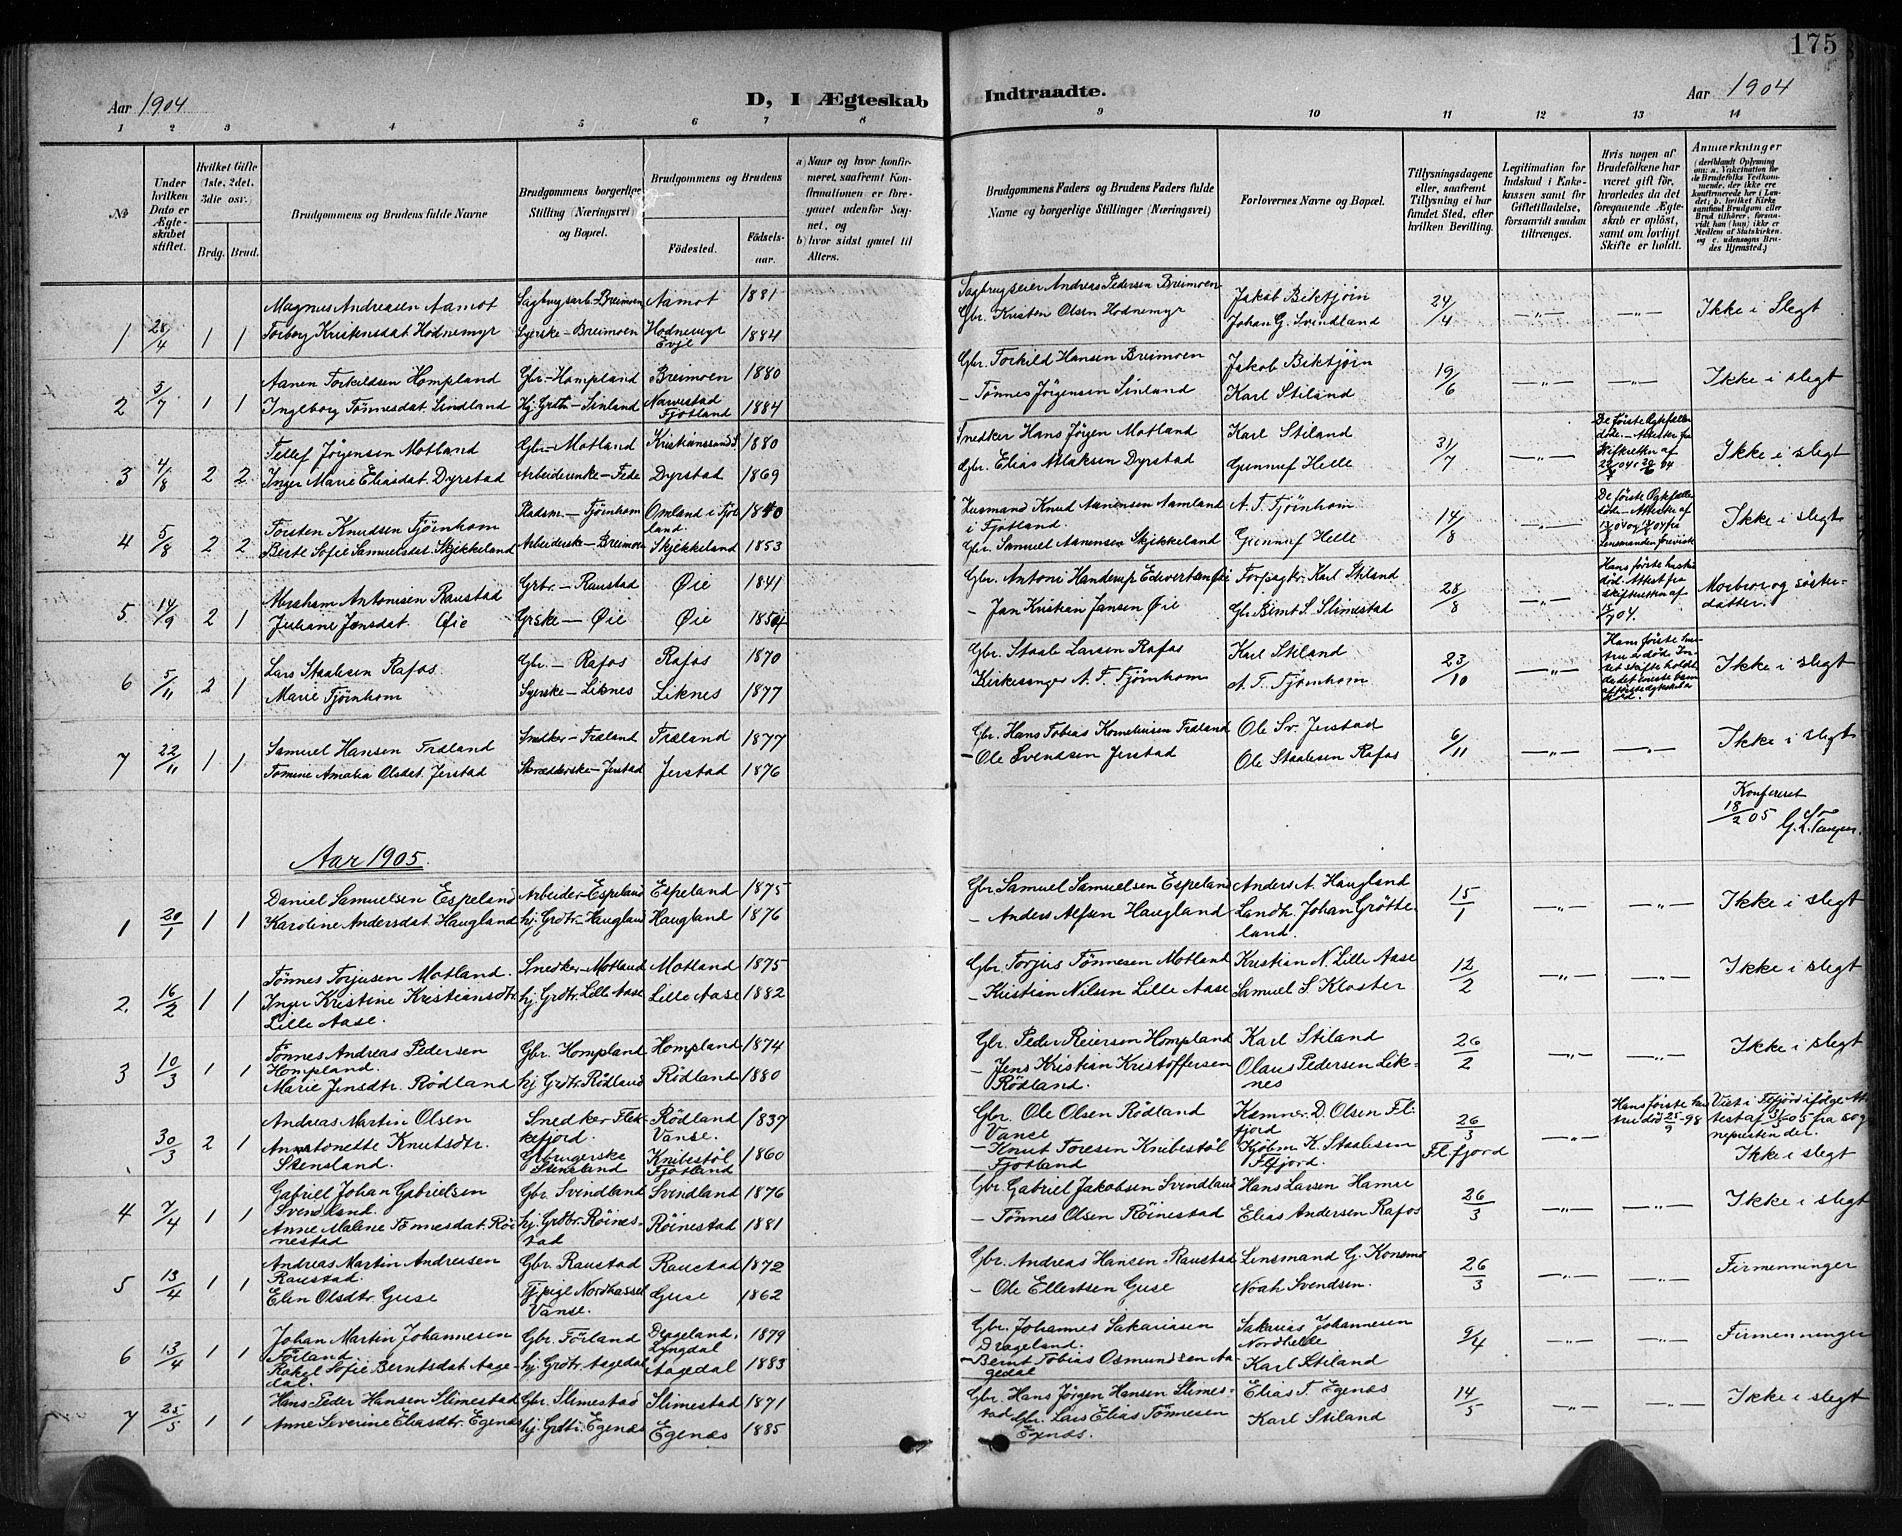 175
Aar 1904
D, I Ægteskab Indtraadte.
Aar 1904
1 2 3 4 5 6 7 8 9 10 11 12 13 14
№
Under hvilken Dato er Ægteskabet stiftet.
Hvilket Gifte (1ste, 2det, 3die osv.)
Brdg. Brud.
Brudgommens og Brudens fulde Navne
Brudgommens borgerlige Stilling (Næringsvei) og Bopæl.
Brudgommens og Brudens
Födested. Födselsaar.
a) Naar og hvor konfirmeret, saafremt Konfirmationen er foregaaet udenfor Sognet, og
b) hvor sidst gaaet til Alters.
Brudgommens Faders og Brudens Faders fulde Navne og borgerlige Stillinger (Næringsvei)
Forlovernes Navne og Bopæl.
Tillysningsdagene eller, saafremt Tillysning ei har fundet Sted, efter hvilken Bevilling.
Legitimation for Indskud i Enkekassen samt for Giftetilladelse, forsaavidt saadan tiltrænges.
Hvis nogen af Brudefolkene har været gift för, hvorledes da det foregaaende Ægteskab er oplöst, samt om lovligt Skifte er holdt.
Anmærkninger
(deriblandt Oplysning om: a. Vakcination for de Brudefolks Vedkommende, der ikke ere konfirmerede her i Landet; b. hvilket Kirkesamfund Brudgom eller Brud tilhörer, forsaavidt han (hun) ikke er Medlem af Statskirken, og c. udensogns Brudes Hjemsted.)
1 28/4 1 1 Magnus Andreasen Aamot Sagbrugsarb.-Breimoen Aamot 1881 Sagbrugseier Andreas Pedersen Breimoen Jakob Biktjørn 24/4 —„— —„— Ikke i Slegt
Torborg Kristensdat Hodnemyr Syerske-Breimoen Hodnemyr Evje 1884 Gbr. Kristen Olsen Hodnemyr Johan G. Svindland
2 5/7 1 1 Aanen Torkildsen Hompland Gbr.-Hompland Breimoen 1880 Gbr. Torkild Hansen Breimoen Jakob Biktjørn 19/6 —„— —„— Ikke i slegt
Ingeborg Tønnesdat. Sindland Hj. Grdtr.-Sinland Narvestad Fjotland 1884 - Tønnes Jørgensen Sinland Karl Stiland
3 4/8 2 2 Tellef Jørgensen Motland Gbr.-Motland Kristianssand S. 1880 Snedker Hans Jörgen Motland Karl Stiland 31/7 —„— De første Ægtefæller døde.- Attester fra Skifteretten af Ikke i slegt
Inger Marie Eliasdat. Dyrstad Arbeiderenke-Fede Dyrstad 1869 Gbr. Elias Atlaksen Dyrstad Gunnuf Helle
4 5/8 2 2 Torsten Knudsen Tjørnhom Pladsm.-Tjørnhom Omland i Fjotland. 1840 Husmand Knud Aanensen Aamland i Fjotland. A. T. Tjørnhom 14/8 —„— De første Ægtefæller døde.-Attester af Lensmanden forevist Ikke i slegt
Birte Sofie Samuelsdtr Skjekkeland Arbeiderske-Breimoen Skjekkeland 1853 Gbr. Samuel Aanensen Skjekkeland Gunnuf Helle
5 14/9 2 1 Abraham Antonisen Raustad Grbr.-Raustad Øie 1841 Gbr. Antoni Handerup Edvertsen Øie Forpagter Karl Stiland 28/8 —„— Hans første hustru død. Attest fra skifteretten af Morbror og søsterdatter.
Juliane Jansdat. Øie Grske-Øie Øie 1854 - Jan Kristian Jansen Øie Gbr Bernt S. Slimestad
6 5/11 2 1 Lars Staalesen Rafos. Gbr.-Rafos Rafos 1870 Gbr. Staale Larsen Rafos Karl Stiland 23/10 —„— Hans første hustru er død. Intet skifte holdt da det eneste barn Ikke i slegt
Marie Tjørnhom Syerske-Liknes Liknes 1877 Kirkesanger A. T. Tjørnhom A. T. Tjørnhom
7 22/11 1 1 Samuel Hansen Træland Snedker-Træland Træland 1877 Gbr. Hans Tobias Korneliusen Træland Ole Sv. Jerstad 6/11 —„— —„— Ikke i slegt
Tomine Amalia Olsdat. Jerstad Skrædderske-Jerstad Jerstad 1876 - Ole Svendsen Jerstad Ole Staalesen Rafos
Konfereret 18/2 05
Aar 1905.
1 20/1 1 1 Daniel Samuelsen Espeland Arbeider-Espeland Espeland 1875 Gbr Samuel Samuelsen Espeland Anders A. Haugland 15/1 —„— —„— Ikke i slegt
Karoline Andersdat. Haugland hj. Grdtr-Haugland Haugland 1876 - Anders Alfsen Haugland Landh. Johan Grötteland.
2. 16/2 1 1 Tönnes Torjusen Motland. Snedker-Motland Motland 1875 Gbr Torjus Tönnesen Motland Kristian N. Lille Aase 12/2 —„— —„— Ikke i slegt
Inger Kristine Kristiansdtr. Lille Aase. hj. Grdtr. Lille Aase Lille Aase 1882 - Kristian Nilsen Lille Aase Samuel S. Kloster
3 10/3 1 1 Tönnes Andreas Pedersen Hompland. Gbr. Hompland Hompland 1874 Gbr. Peder Reiersen Hompland Karl Stiland 26/2 —„— —„— Ikke i slegt
Marie Jensdtr. Rödland hj. Grdtr. Rödland Rödland 1880 - Jens Kristian Kristoffersen Rödland. Olaus Pedersen Liknes
30/3 2 1 Andreas Martin Olsen Snedker Flekkefjord. Rödland Vanse. 1837 Gbr. Ole Olsen Rödland Vanse Kæmner D. Olsen Fl.fjord 26/3 Fl.fjord —„— Hans første hustru död 25/9-98 Viet i Fl.fjord ifölge Attest af 31/3 05 fra sognepresten der. Ikke i slegt
Antonette Knutsdtr. Stensland. Gbrugerske Stensland Knibestöl Fjotland 1860 - Knut Toresen Knibestöl Fjotland Kjöbm K. Staalesen Flfjord.
4 7/4 1 1 Gabriel Johan Gabrielsen Svendland. Gbr. Svindland Svindland 1876 Gbr. Gabriel Jakobsen Svindland Hans Larsen Hamre 26/3 —„— —„— Ikke i slegt
Anne Malene Tönnesdat. Röinestad hj. Grdtr. Röinestad Röinestad 1881 - Tönnes Olsen Röinestad Elias Andersen Rafos
5 13/4 1 1 Andreas Martin Andreasen Raustad. Gbr. Raustad Raustad 1872 Gbr. Andreas Hansen Raustad Lensmand G. Konsmo 26/3 —„— —„— Firmenninger
Elen Olsdtr. Guse Tj.pige Nordhassel Vanse. Guse 1862 - Ole Ellertsen Guse Noah Svendsen.
6 13/4 1 1 Johan Martin Johannesen Förland Gbr. Förland Drageland, Lyngdal 1879 Gbr. Johannes Sakariasen Drageland. Sakarias Johannesen Nordhelle 9/4 —„— —„— Firmenninger
Rakel Sofie Berntsdat. Aagedal. hj. Grdtr. Aagedal Aagedal 1883 - Bernt Tobias Osmundsen Aagedal Karl Stiland
7 25/5 1 1 Hans Peder Hansen Slimestad Gbr. Slimestad Slimestad 1871 Gbr. Hans Jörgen Hansen Slimestad Elias T. Egenæs 14/5 —„— —„— Ikke i slegt
Anne Severine Eliasdtr. Egenæs hj. Grdtr. Egenæs Egenæs 1885 Gbr. Lars Elias Tönnesen Egenæs. Karl Stiland